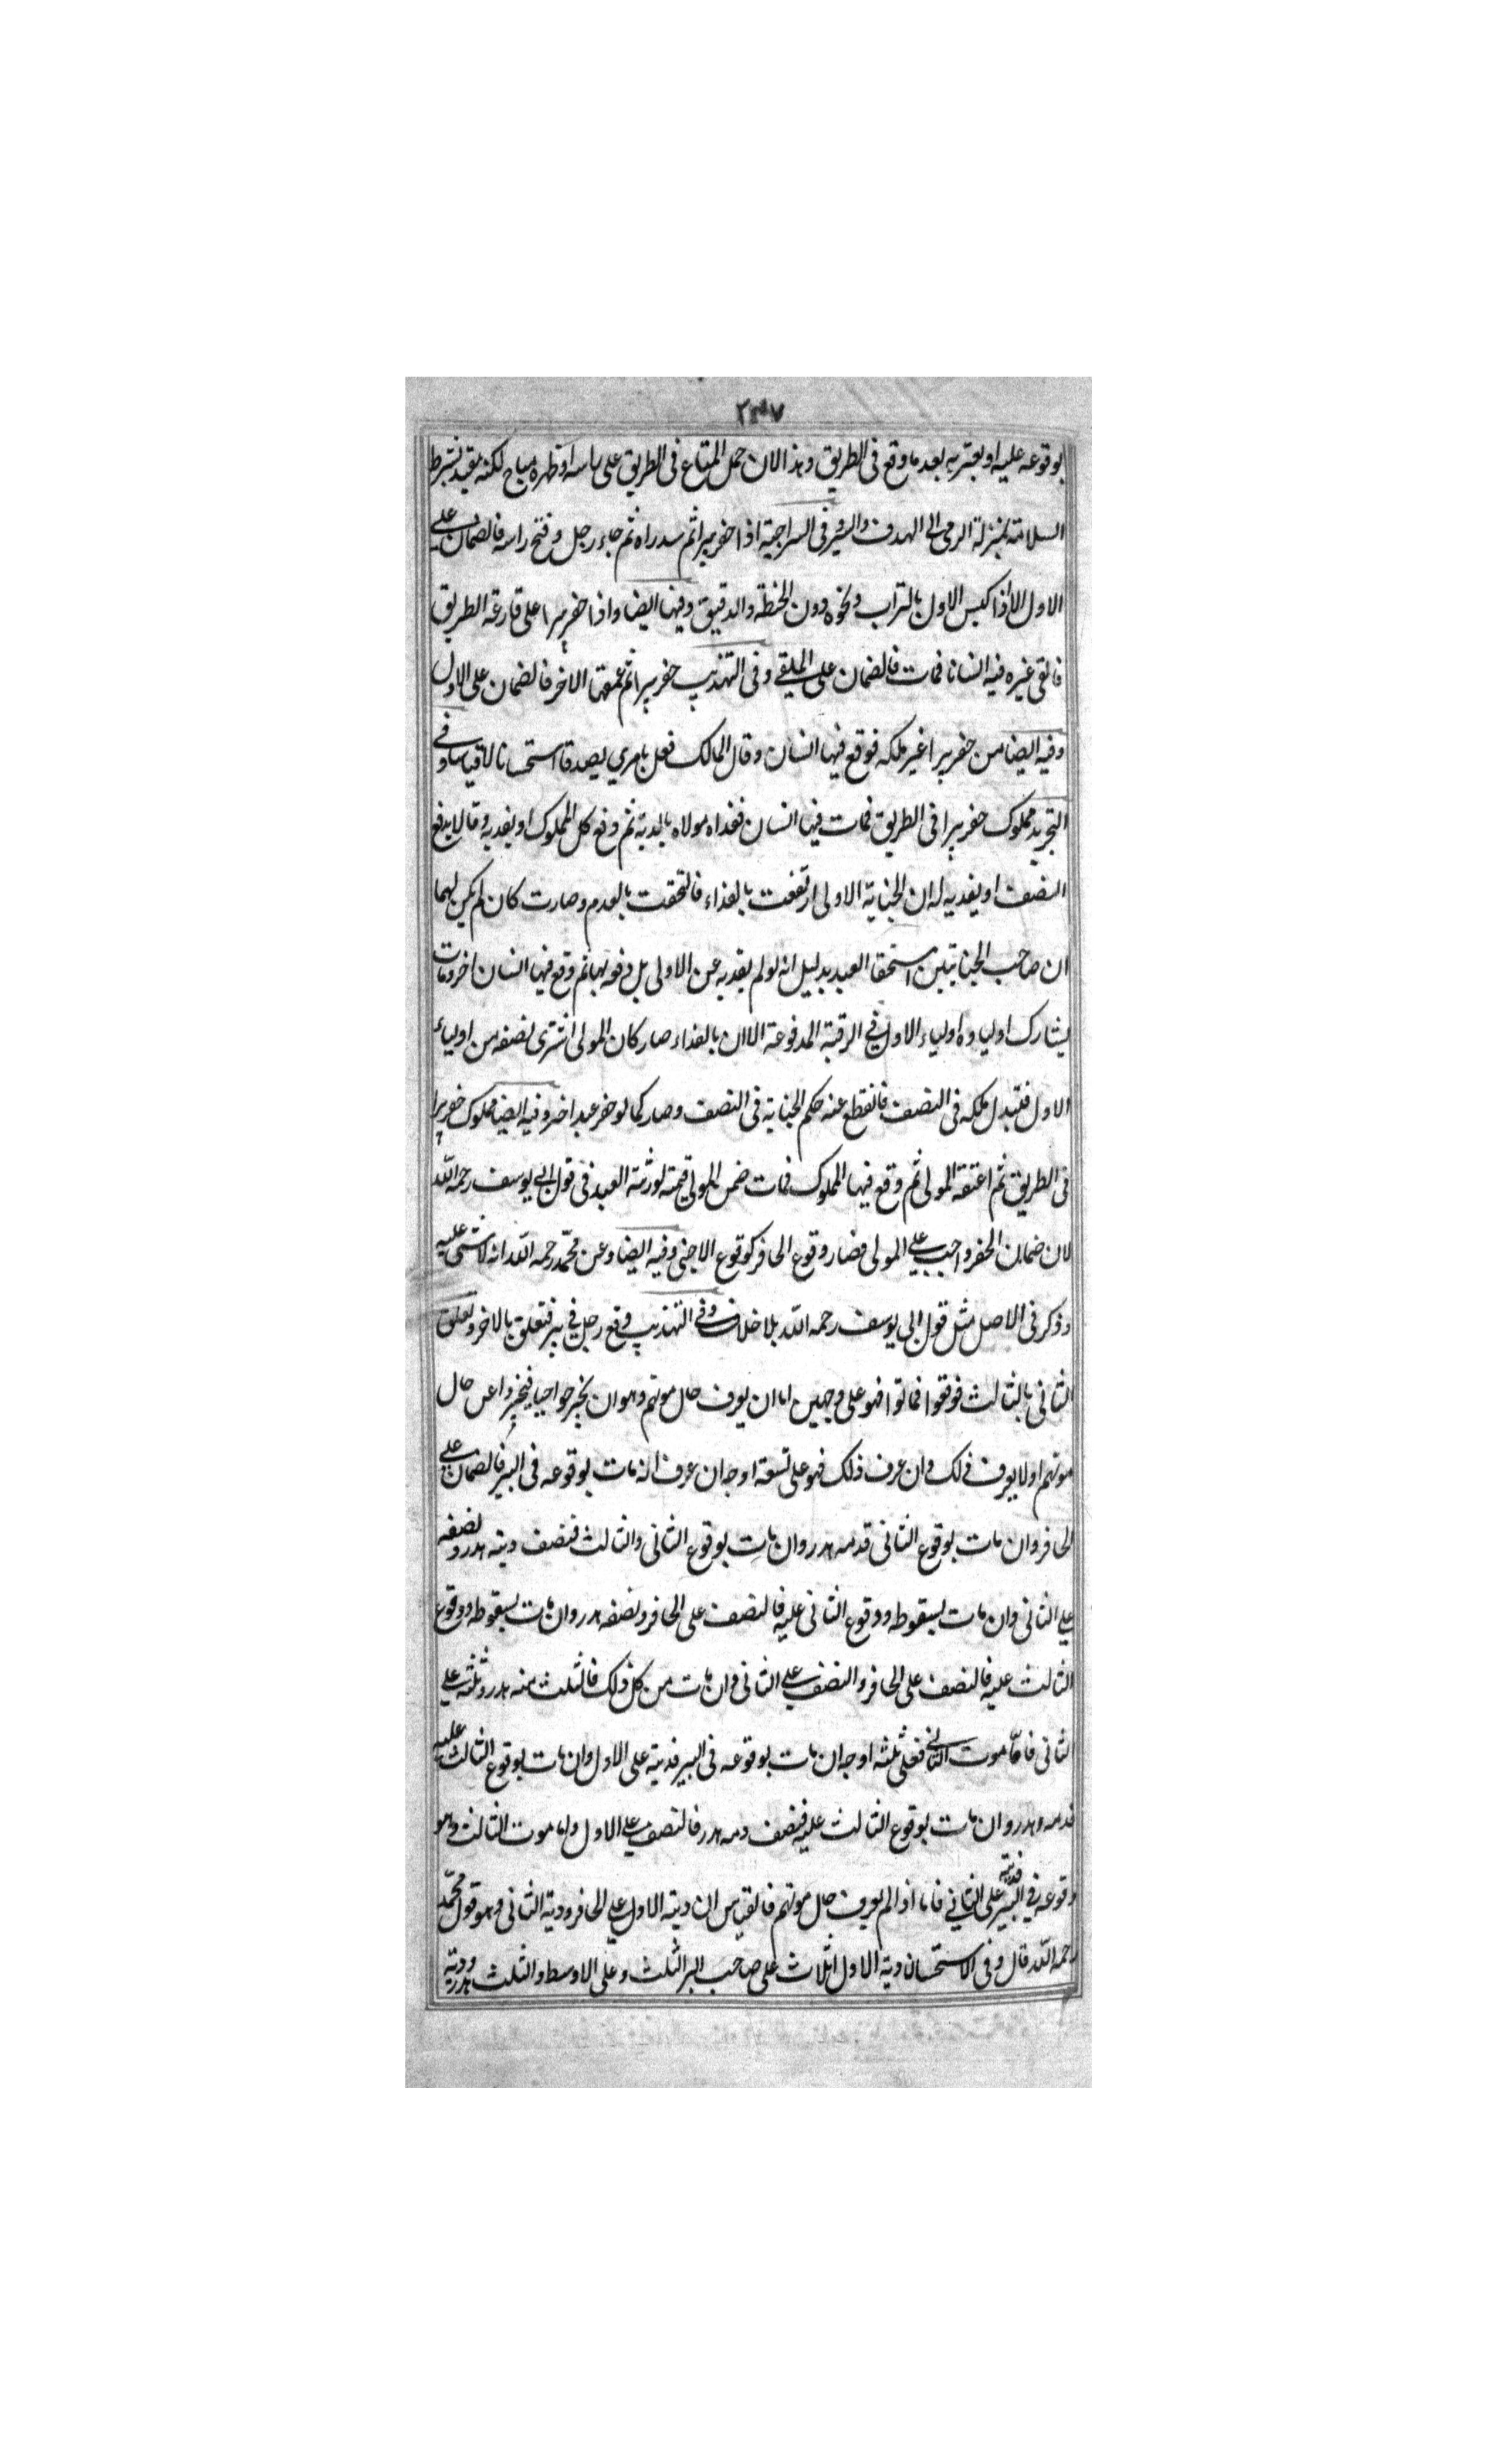 ٢٣٧
بوقوعه عليه او بعثر به بعد ما وقع فى الطريق وهذا لان حمل المتاع فى الطريق على راسه او ظهره مباح لكنه مقيد بشرط
السلامة بمنزلة الرمى الى الهدف والصيد فى السراجية اذا حفر بيرا ثم سد راه ثم جاء رجل وفتح راسه فالضمان على
الاول الا اذا كبس الاول بالتراب ونحوه دون الحنطة والدقيق وفيها ايضا واذا حفر بيرا على قارعة الطريق
فالقى غيره فيه انسانا فمات فالضمان على الملقى وفى التهذيب حفر بيرا ثم عمقها الاخر فالضمان على الاول
وفيه ايضا من حفر بيرا غير ملكه فوقع فيها انسان وقال المالك فعل بامري يصدق استحسانا لا قياسا وفى
التجريد مملوك حفر بيرا فى الطريق فمات فيها انسان ففداه مولاه بالدية ثم وقع كل المملوك او يفديه وقالا يدفع
النصف او يفديه له ان الجناية الاولى ارتفعت بالفداء فالتحقت بالعدم وصارت كان لم يكن لهما
ان صاحب الجنايتين استحقا العبد بدليل انه لو لم يفد به عن الاولى بل دفعه بها ثم وقع فيها انسان اخر ومات
يشارك اولياوه اولياء الاول فى الرقبة المدفوعة الا ان بالفداء صار كان المولى اشترى نصفه من اولياء
الاول فتبدل ملكه فى النصف فانقطع عنه حكم الجناية فى النصف وصار كما لو حفر عبد اخر وفيه ايضا مملوك حفر بيرا
فى الطريق ثم اعتقه المولى ثم وقع فيها المملوك فمات ضمن المولى قيمته لورثة العبد فى قول ابى يوسف رحمه الله
لان ضمان الحفر واجب على المولى فصار وقوع الحافر كوقوع الاجنى وفيه ايضا وعن محمد رحمه الله انه لا شئ عليه
وذكر فى الاصل مثل قول ابى يوسف رحمه الله بلا خلاف وفى التهذيب وقع رجل فى بير فتعلق بالاخر وتعلق
الثانى بالثالث فوقعوا فماتوا فهو على وجهين اما ان يعرف حال موتهم وهو ان يخرجوا احيا فيخبروا عن حال
موتهم او لا يعرف ذلك وان عرف ذلك فهو على تسعة اوجه ان عرف انه مات بوقوعه فى البير فالضمان على
الحافر وان مات بوقوع الثانى فدمه هدر وان مات بوقوع الثانى والثالث فنصف ديته هدر ونصفه
على الثانى وان مات بسقوطه ووقوع الثانى عليه فالنصف على الحافر ونصفه هدر وان مات بسقوطه ووقوع
الثالث عليه فالنصف على الحافر والنصف على الثانى وان مات من كل ذلك فالثلث منه هدر وثلثه على
الثانى فاما موت الثانى فعلى ثلثه اوجه ان مات بوقوعه فى البير فديته على الاول وان مات بوقوع الثالث عليه
فدمه هدر وان مات بوقوع الثالث عليه فنصف دمه هدر فالنصف على الاول واما موت الثالث وهو
وقوعه فى البير فديته على الثانى فاما اذا لم يعرف حال موتهم فالقياس ان دية الاول على الحافر ودية الثانى وهو قول محمد
رحمه الله قال وفى الاستحسان دية الاول اثلاث على صاحب البر الثلث وعلى الاوسط والثلث هدر ودية